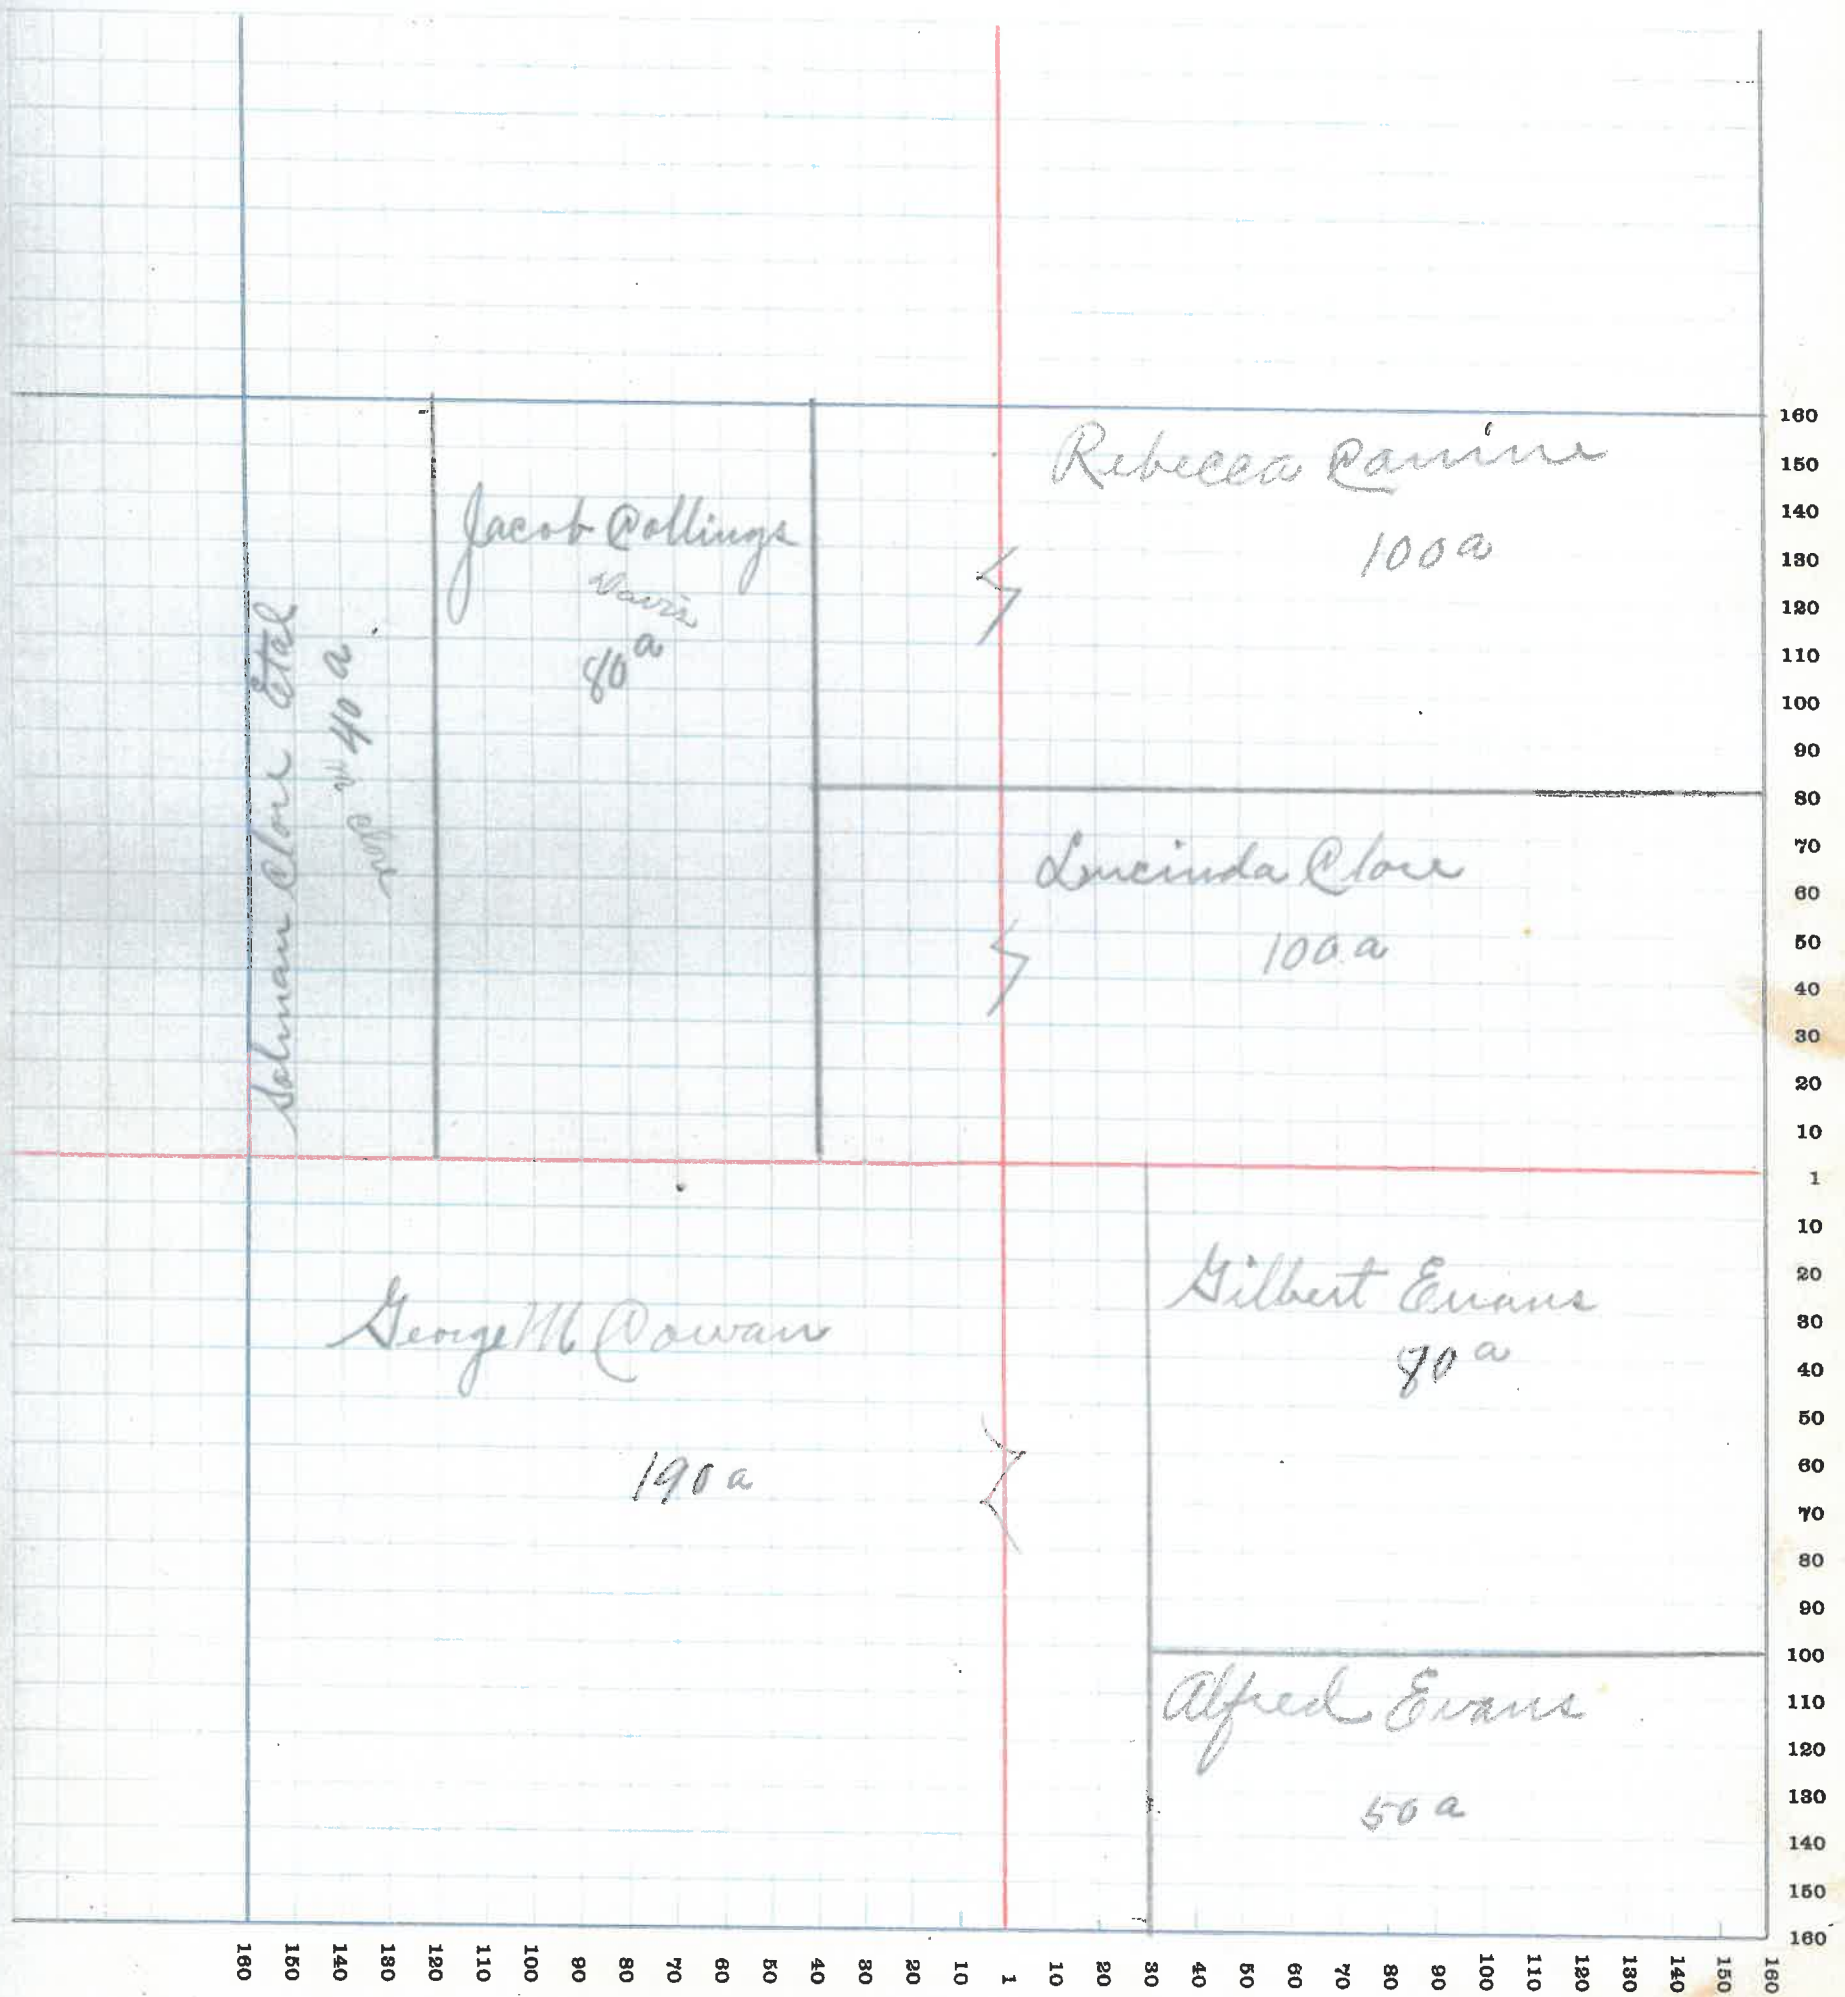 Rebecca Canine
100 a
Jacob Collings
Davis
80 a
Solman Clore Etal
40 a
Lucinda Clore
100 a
George M Cowan
190 a
Gilbert Evans
80 a
Alfred Evans
50 a
160
150
140
130
120
110
100
90
80
70
60
50
40
30
20
10
1
10
20
30
40
50
60
70
80
90
100
110
120
130
140
150
160
160 150 140 130 120 110 100 90 80 70 60 50 40 30 20 10 1 10 20 30 40 50 60 70 80 90 100 110 120 130 140 150 160